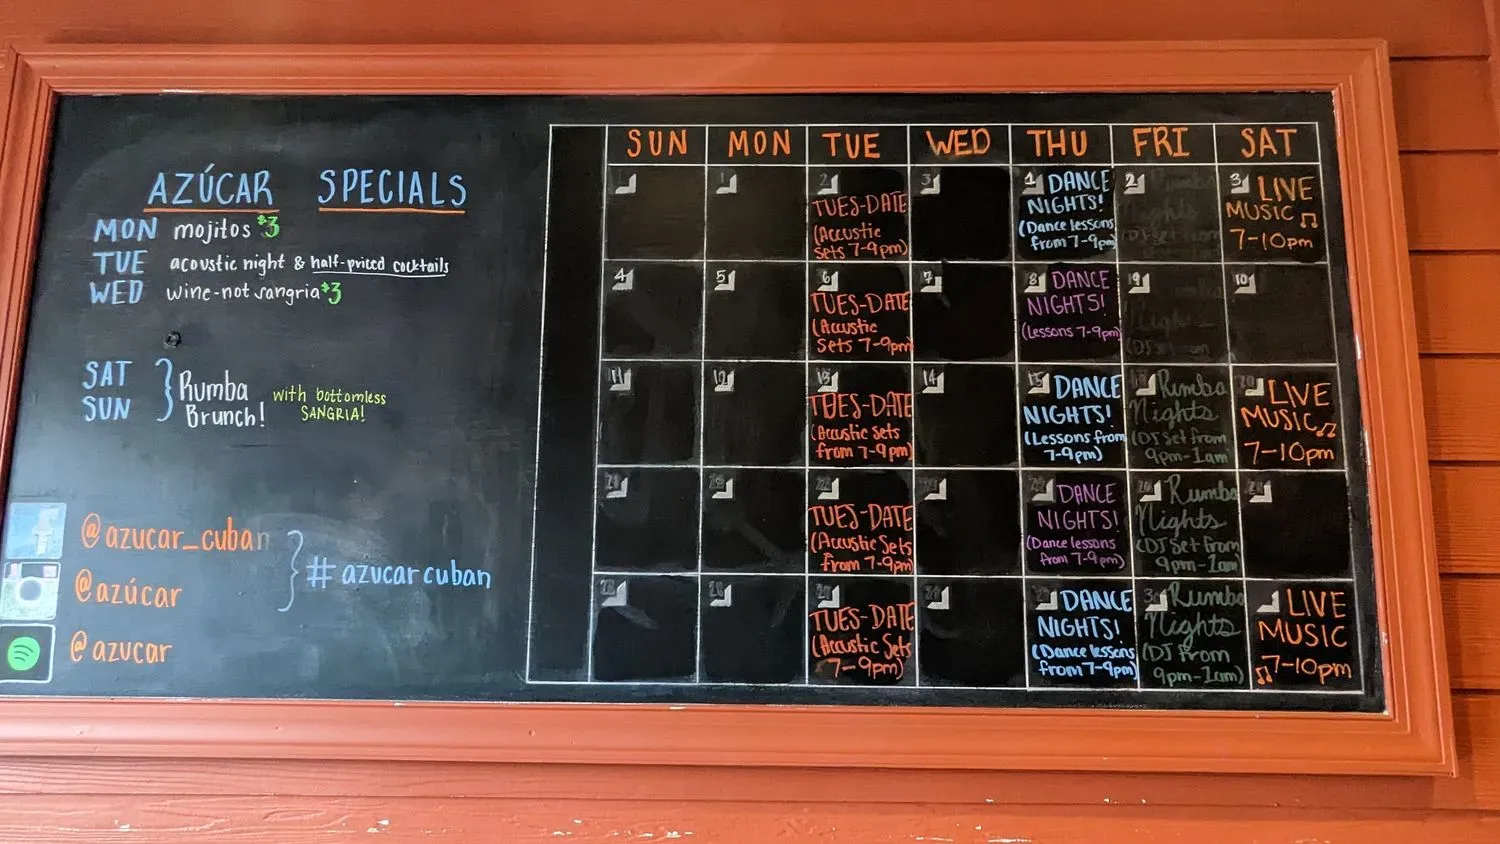 AZÚCAR SPECIALS
MON mojitos $3
TUE acoustic night & half-priced cocktails
WED wine-not sangria $3
SAT
SUN
Rumba
Brunch!
with bottomless
SANGRIA!
@azucar_cuban
@azúcar
#azucarcuban
@azucar
SUN MON TUE WED THU FRI SAT
1 2 3 1 2 3
TUES-DATE
(Accustic
Sets 7-9pm)
DANCE
NIGHTS!
(Dance lessons
from 7-9pm)
Rumba
Nights
(DJ Set from
LIVE
MUSIC
7-10pm
4 5 6 7 8 9 10
TUES-DATE
(Acustic
Sets 7-9pm)
DANCE
NIGHTS!
(Lessons 7-9pm)
Nights
11 12 13 14 15
TUES-DATE
(Accustic Sets
from 7-9pm)
DANCE
NIGHTS!
(Lessons from
7-9pm)
Rumba
Nights
(DJ Set from
9pm-1am)
LIVE
MUSIC
7-10pm
TUES-DATE
(Accustic Sets
from 7-9pm)
DANCE
NIGHTS!
(Dance lessons
from 7-9pm)
Rumba
Nights
(DJ Set from
9pm-1am)
TUES-DATE
(Accustic Sets
7-9pm)
DANCE
NIGHTS!
(Dance lessons
from 7-9pm)
Rumba
Nights
(DJ from
9pm-1am)
LIVE
MUSIC
7-10pm